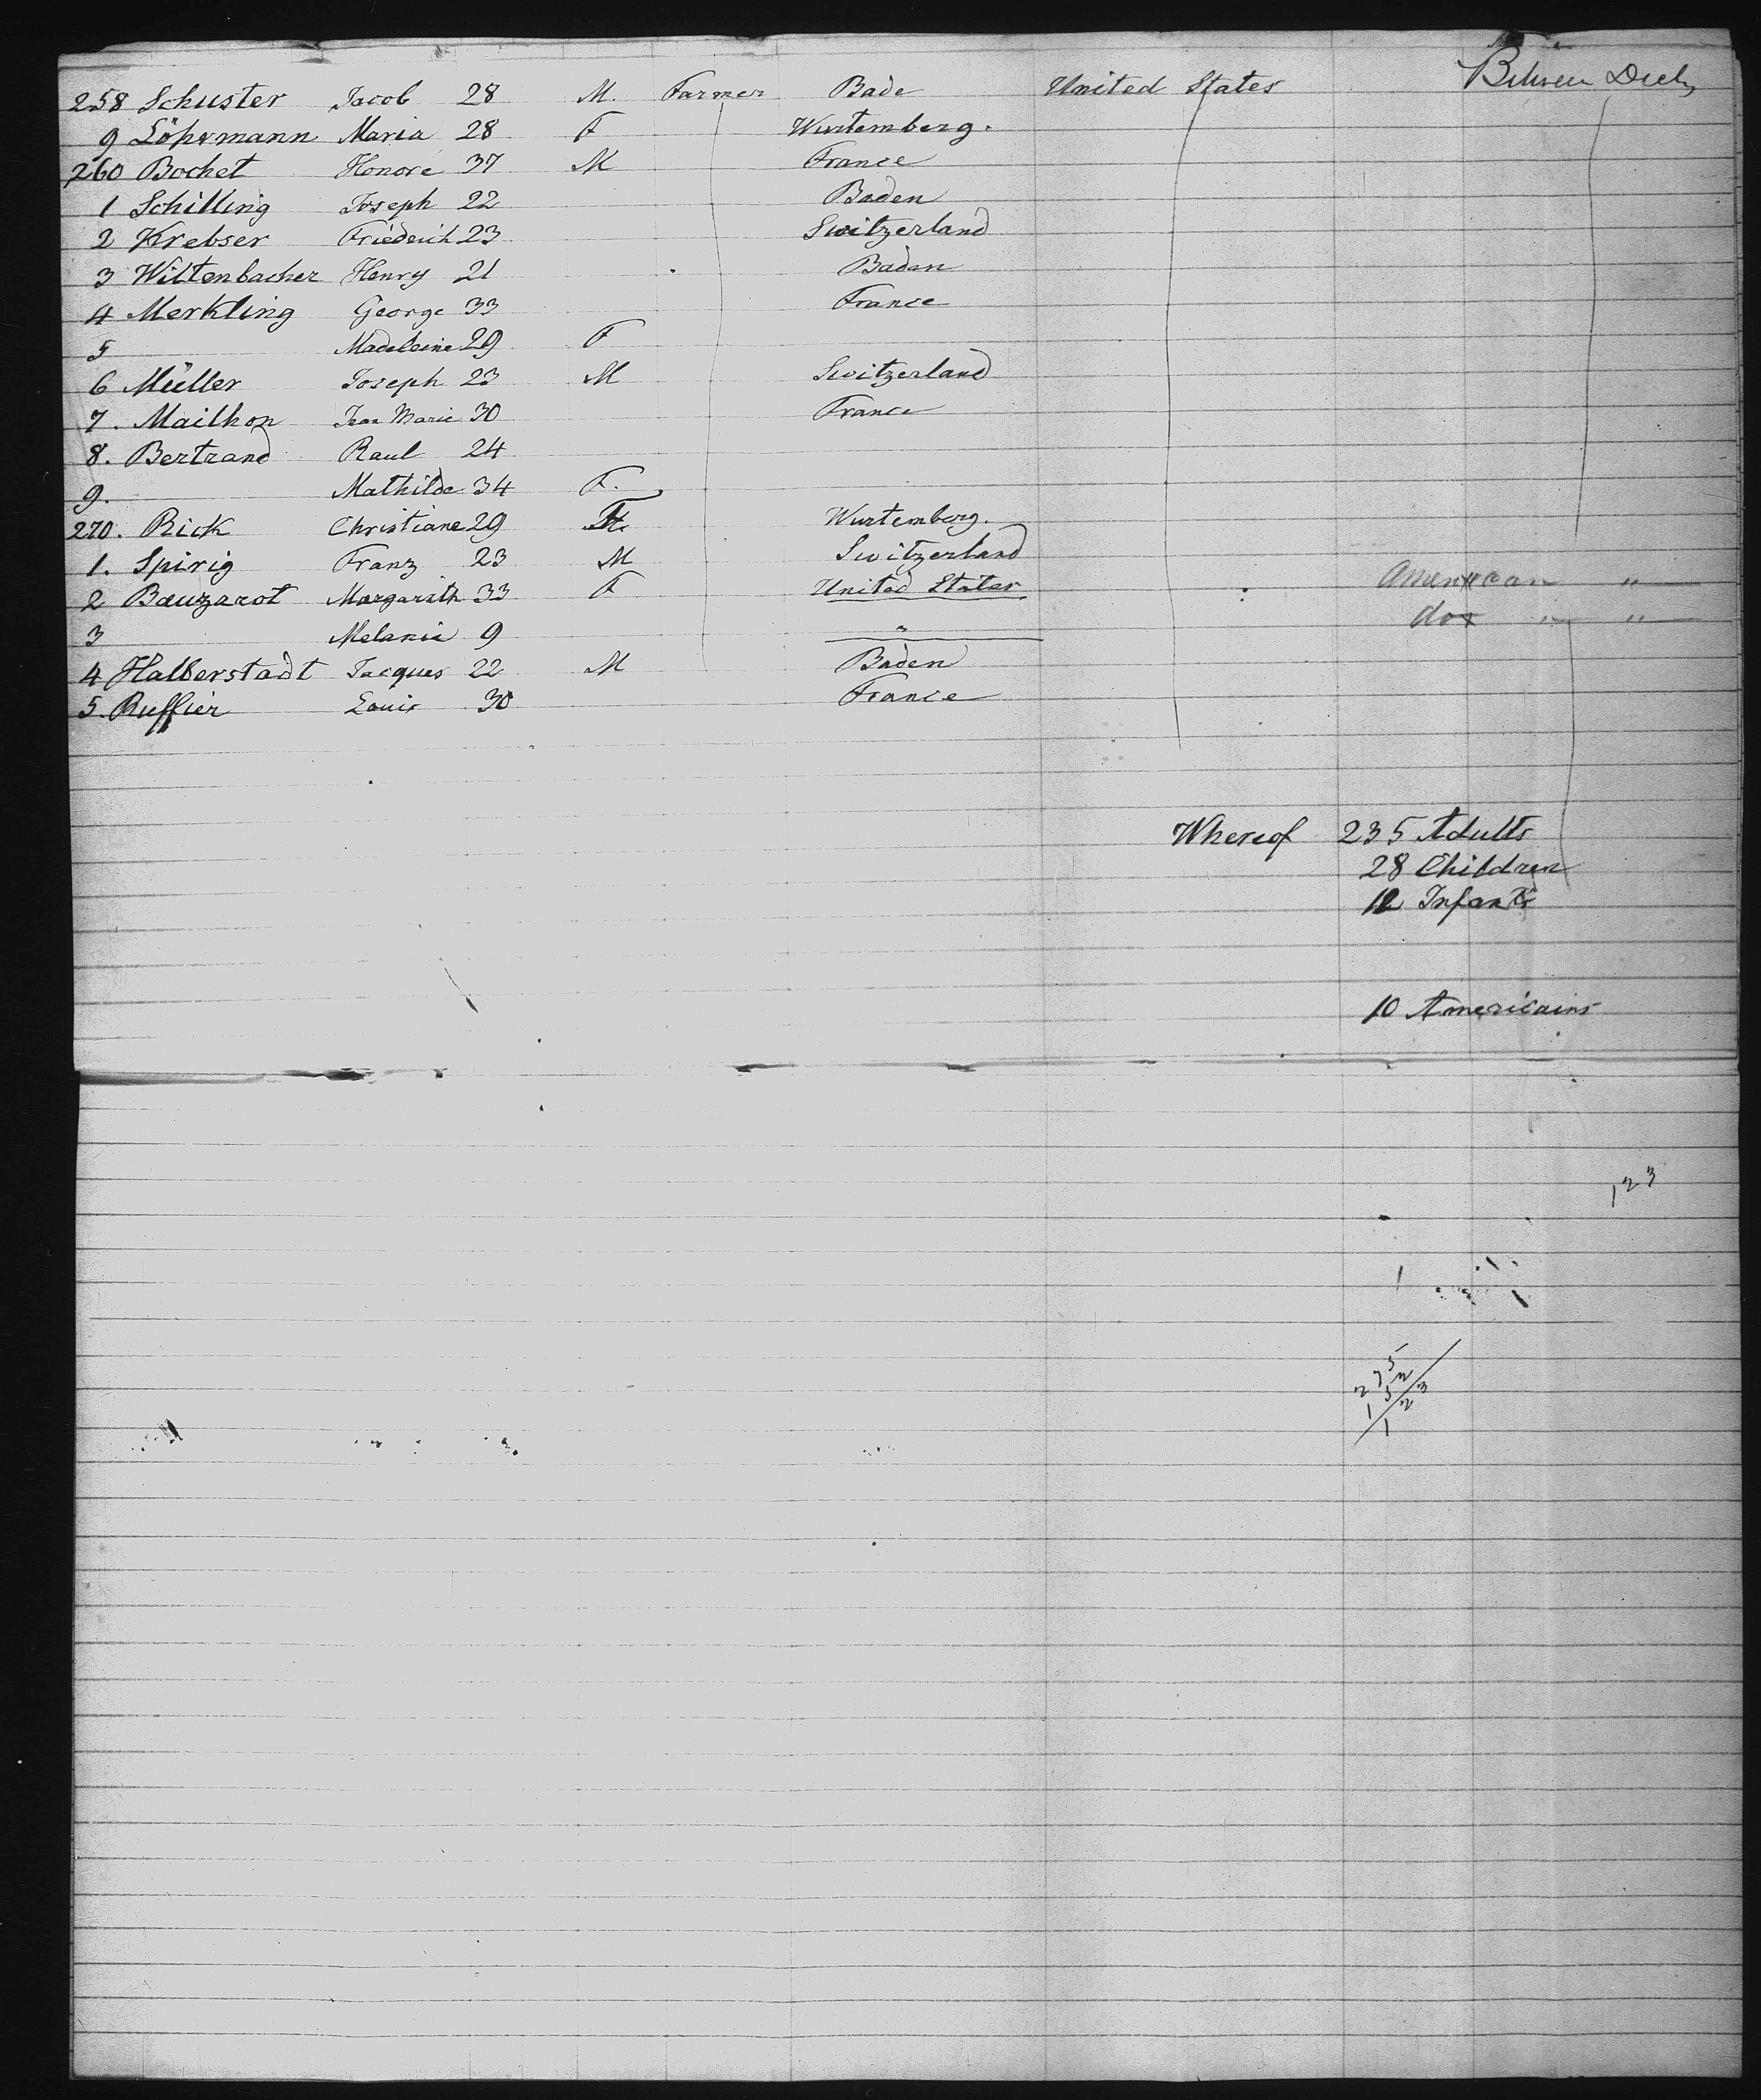 258 Schuster Jacob 28 M. Farmer Bade United States Between Decks
9 Löhrmann Maria 28 F Wurtemberg.
260 Bochet Honoré 37 M France
1 Schilling Joseph 22 Baden
2 Krebser Friederich 23 Switzerland
3 Wiltenbacher Henry 21 Baden
4 Merkling George 33 France
5 Madeleine 29 F
6 Müller Joseph 23 M Switzerland
7. Mailhon Jean Marie 30 France
8. Bertrand Raul 24
9. Mathilde 34 F.
270. Rick Christiane 29 F. Wurtemberg.
1. Spirig Franz 23 M Switzerland
2 Bauzarot Margarath 33 F United States American "
3 Melanie 9 " do " "
4 Halberstadt Jacques 22 M Baden
5. Ruffier Louis 30 France
Whereof 235 Adults
28 Children
12 Infants
10 Americains
123
275
152
123